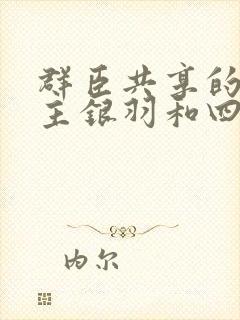 群臣共享的
主银羽和四
内尔